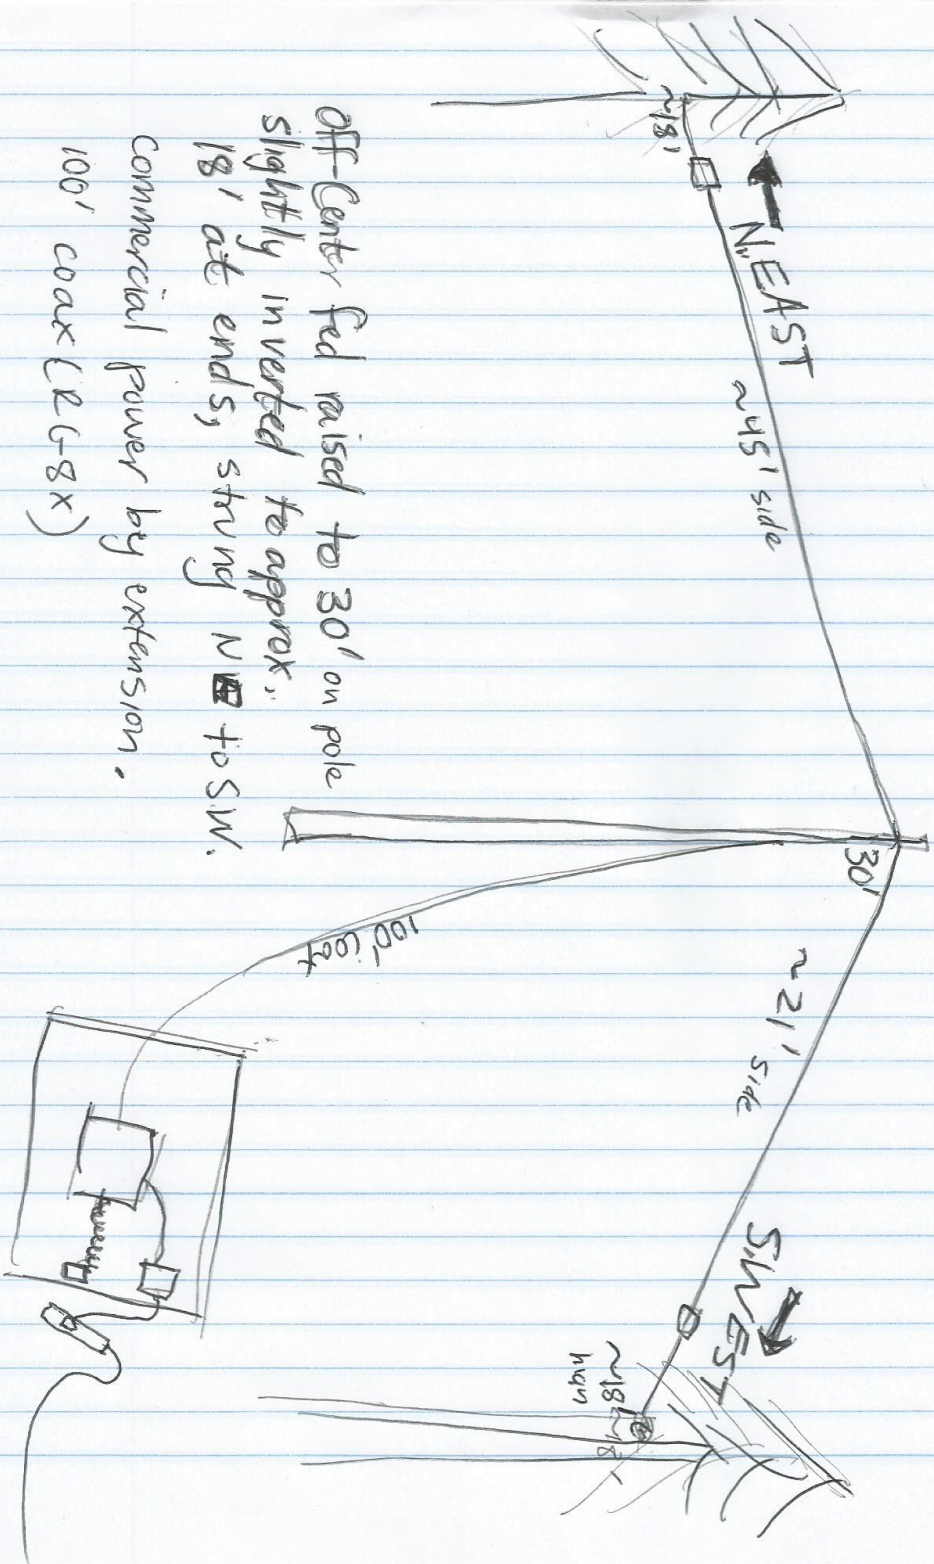 ~18'
N.EAST
~45' side
30'
~21' side
S.WEST
~18'
high
~18'
100'
Coax
off-Center fed raised to 30' on pole
slightly inverted to approx.
18' at ends, strung N to S.W.
Commercial power by extension.
100' coax (RG-8X)